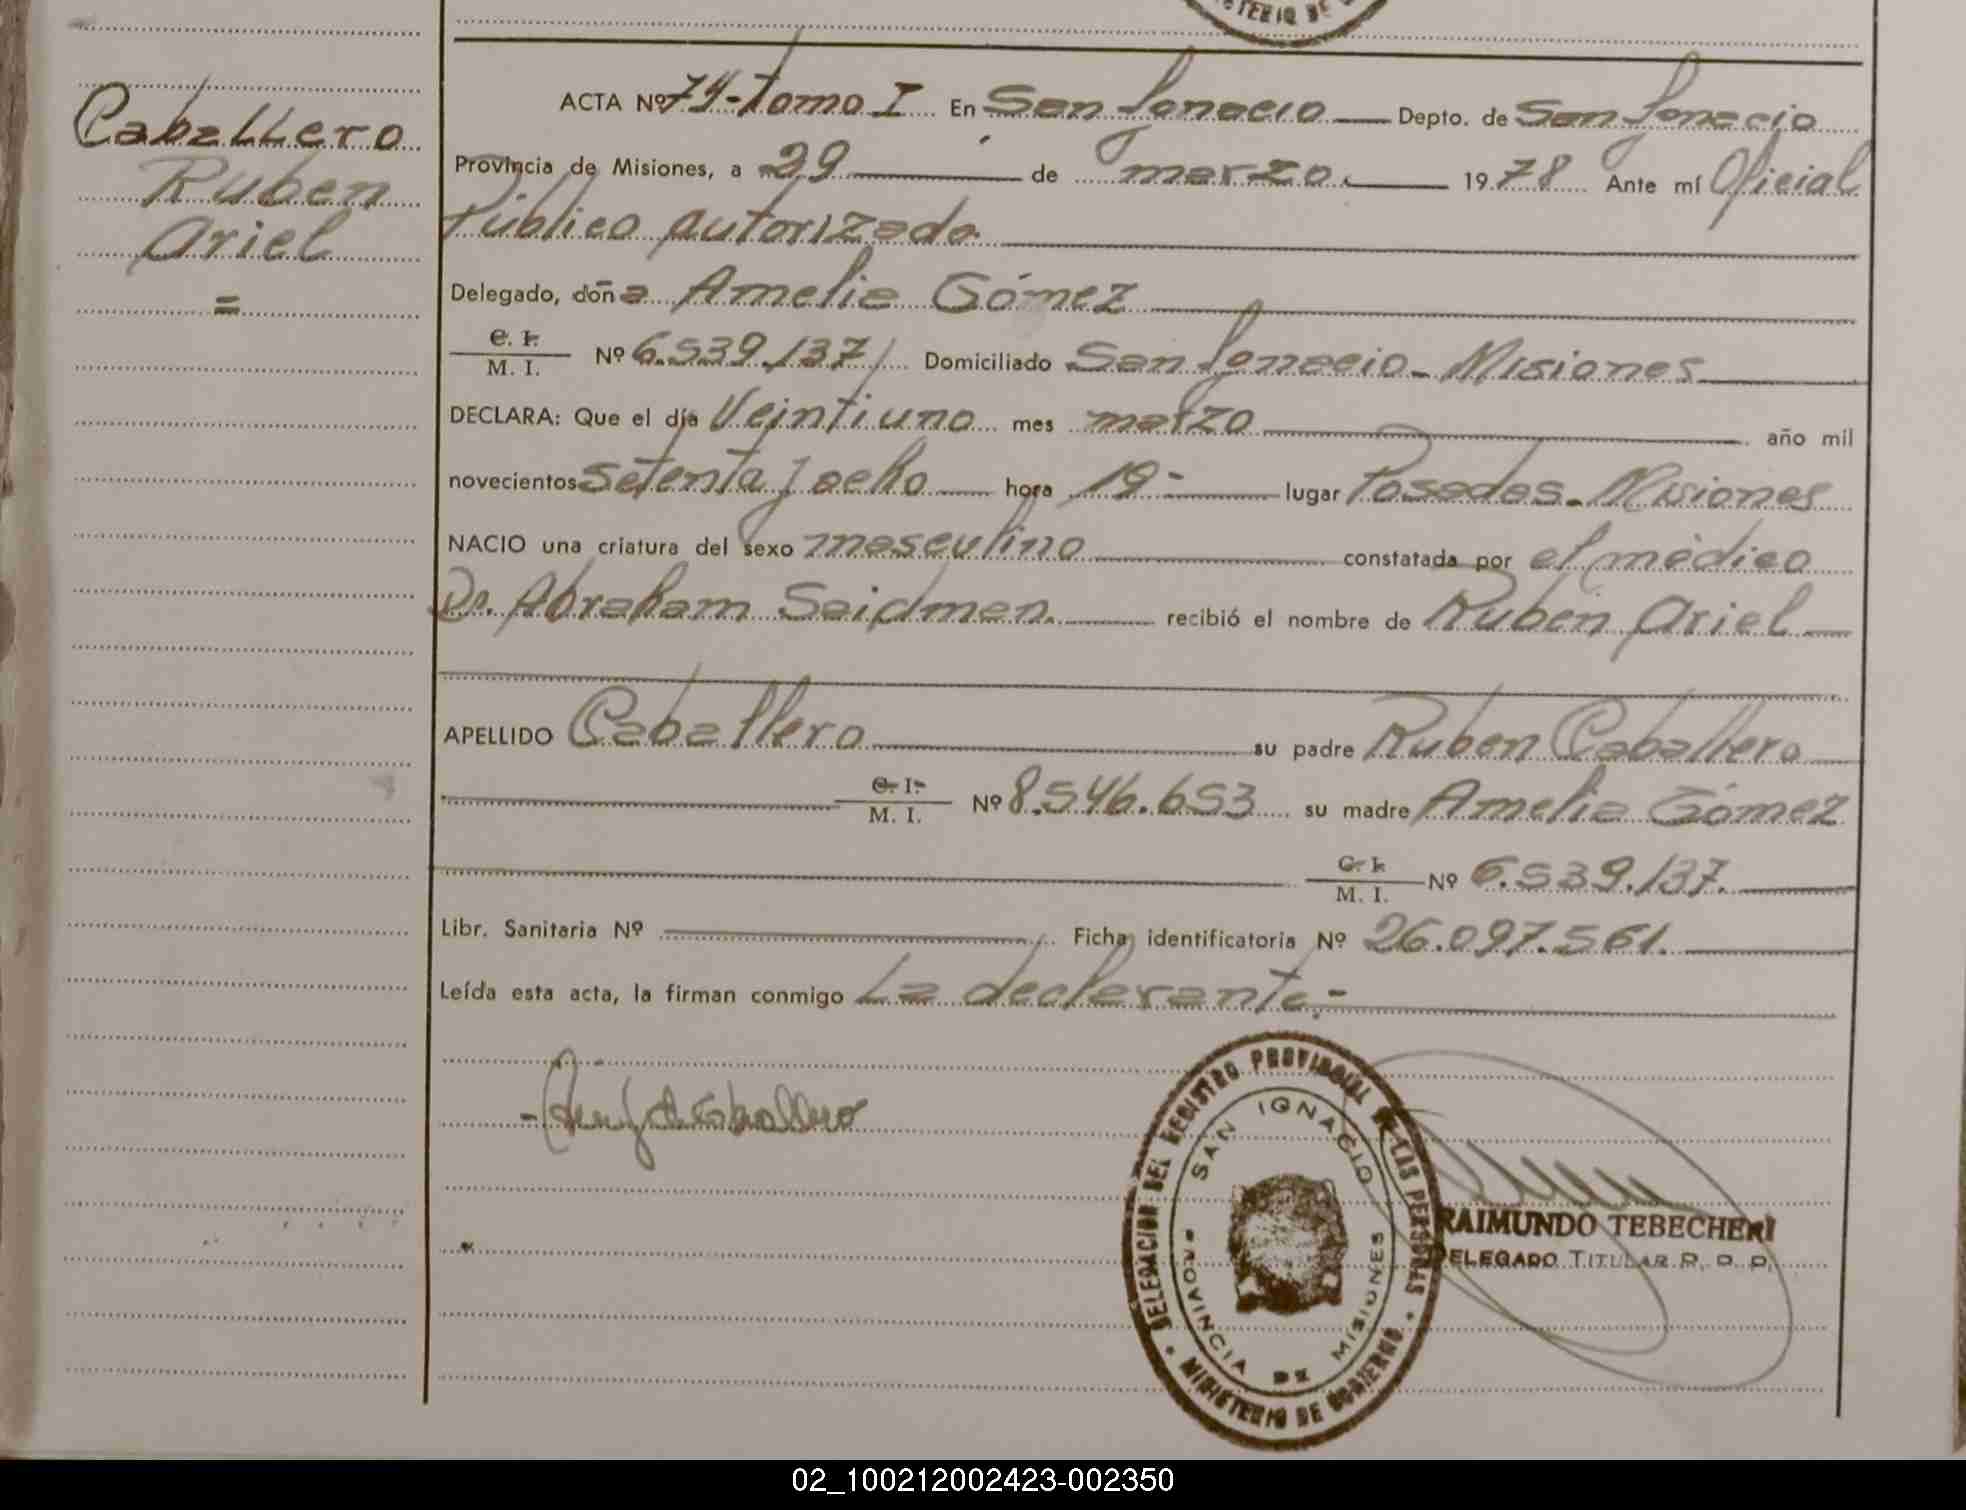 Caballero
Ruben
Ariel
=
ACTA Nº 74-Tomo I En San Ignacio Depto. de San Ignacio
Provincia de Misiones, a 29 de marzo 1978 Ante mí Oficial
Público autorizado
Delegado, doña Amelia Gómez
C. I.
M. I. Nº 6.539.137 Domiciliado San Ignacio - Misiones
DECLARA: Que el día Veintiuno mes marzo año mil
novecientos setenta y ocho hora 19- lugar Posadas - Misiones
NACIO una criatura del sexo masculino constatada por el médico
Dr. Abraham Saidman. recibió el nombre de Ruben Ariel
APELLIDO Caballero su padre Ruben Caballero
C. I.
M. I. Nº 8.546.653 su madre Amelia Gómez
C. I.
M. I. Nº 6.539.137.
Libr. Sanitaria Nº Ficha identificatoria Nº 26.097.561.
Leída esta acta, la firman conmigo La declarante.-
DELEGACION DEL REGISTRO PROVINCIAL DE LAS PERSONAS
SAN IGNACIO
PROVINCIA DE MISIONES
MINISTERIO DE GOBIERNO
RAIMUNDO TEBECHERI
DELEGADO TITULAR R. P. P.
02_100212002423-002350